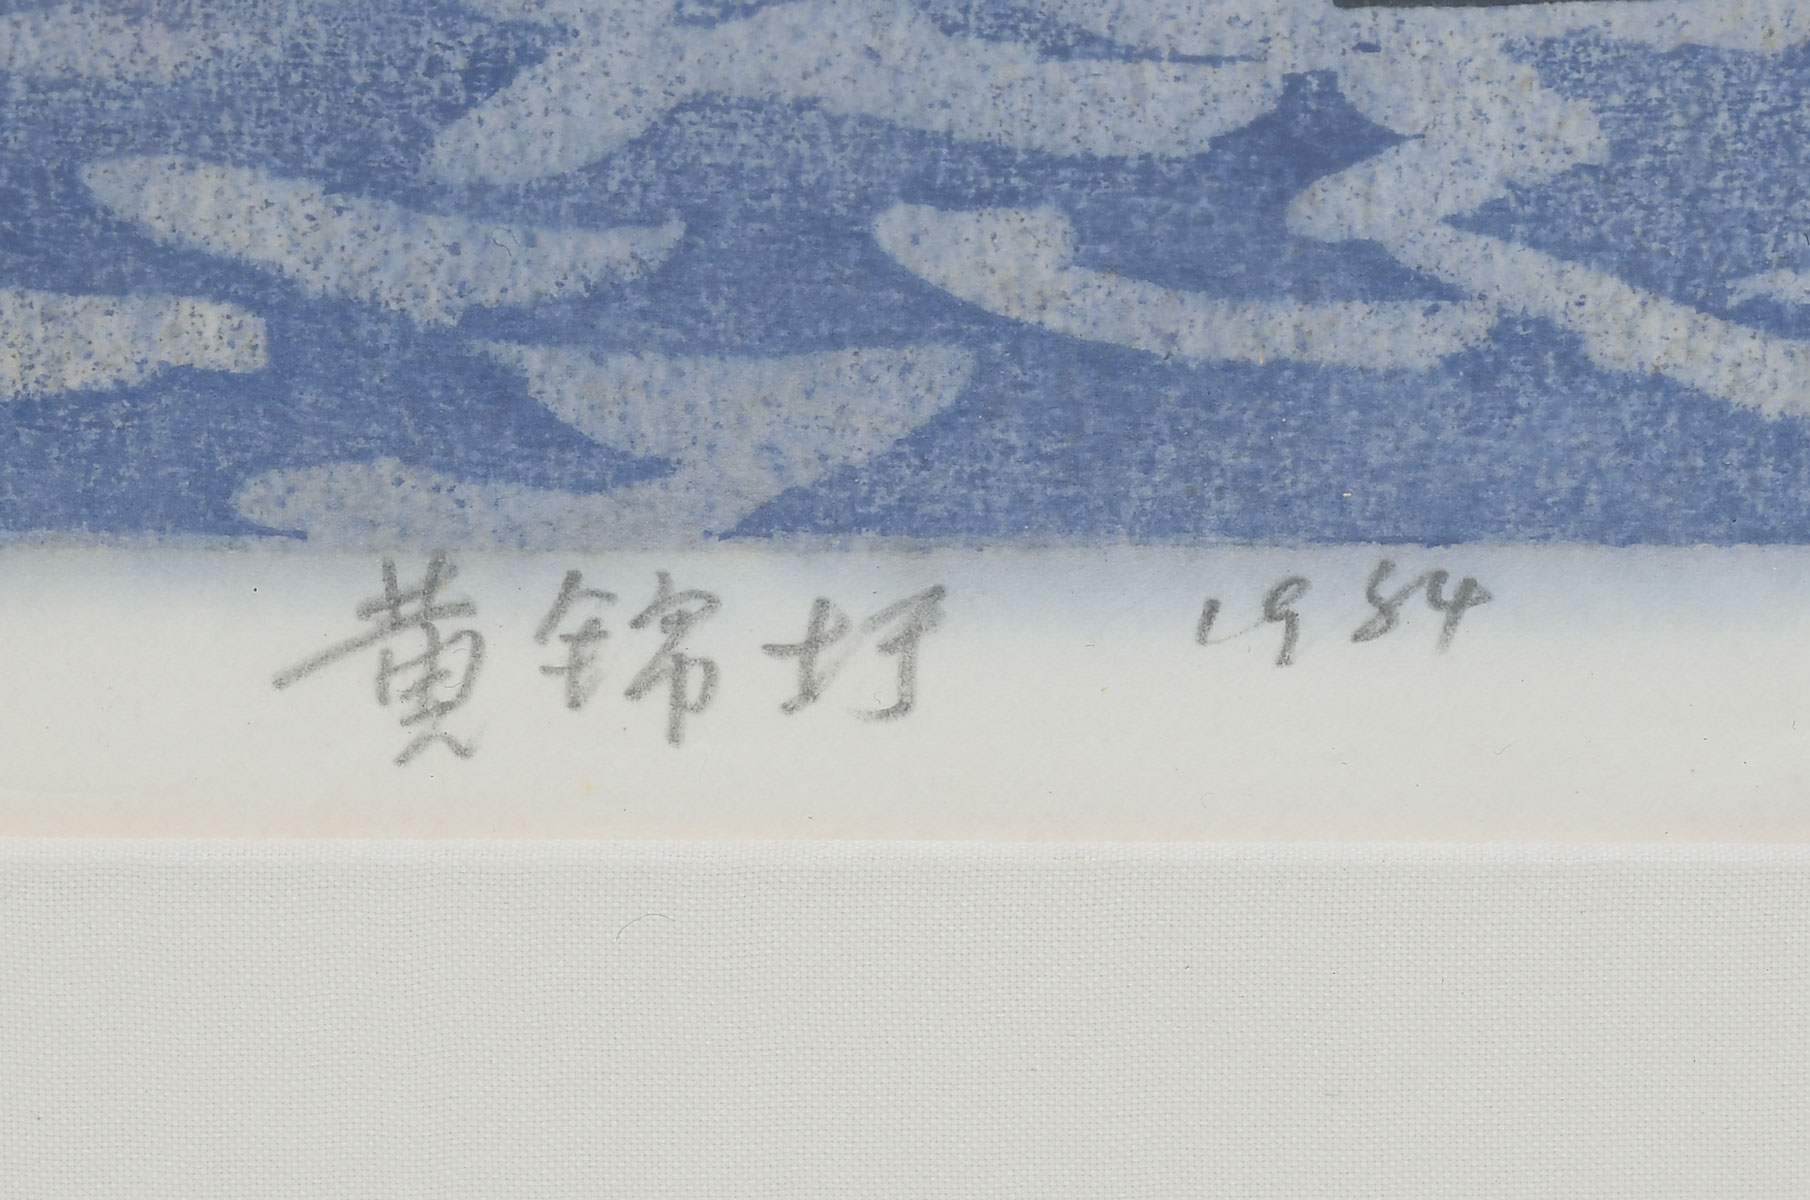 黄锦圩 1984